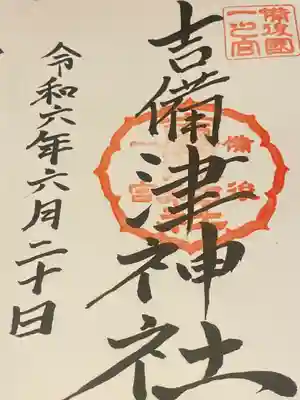 備後國
一之宮
吉備津神社
備後
一宮
令和六年六月二十日